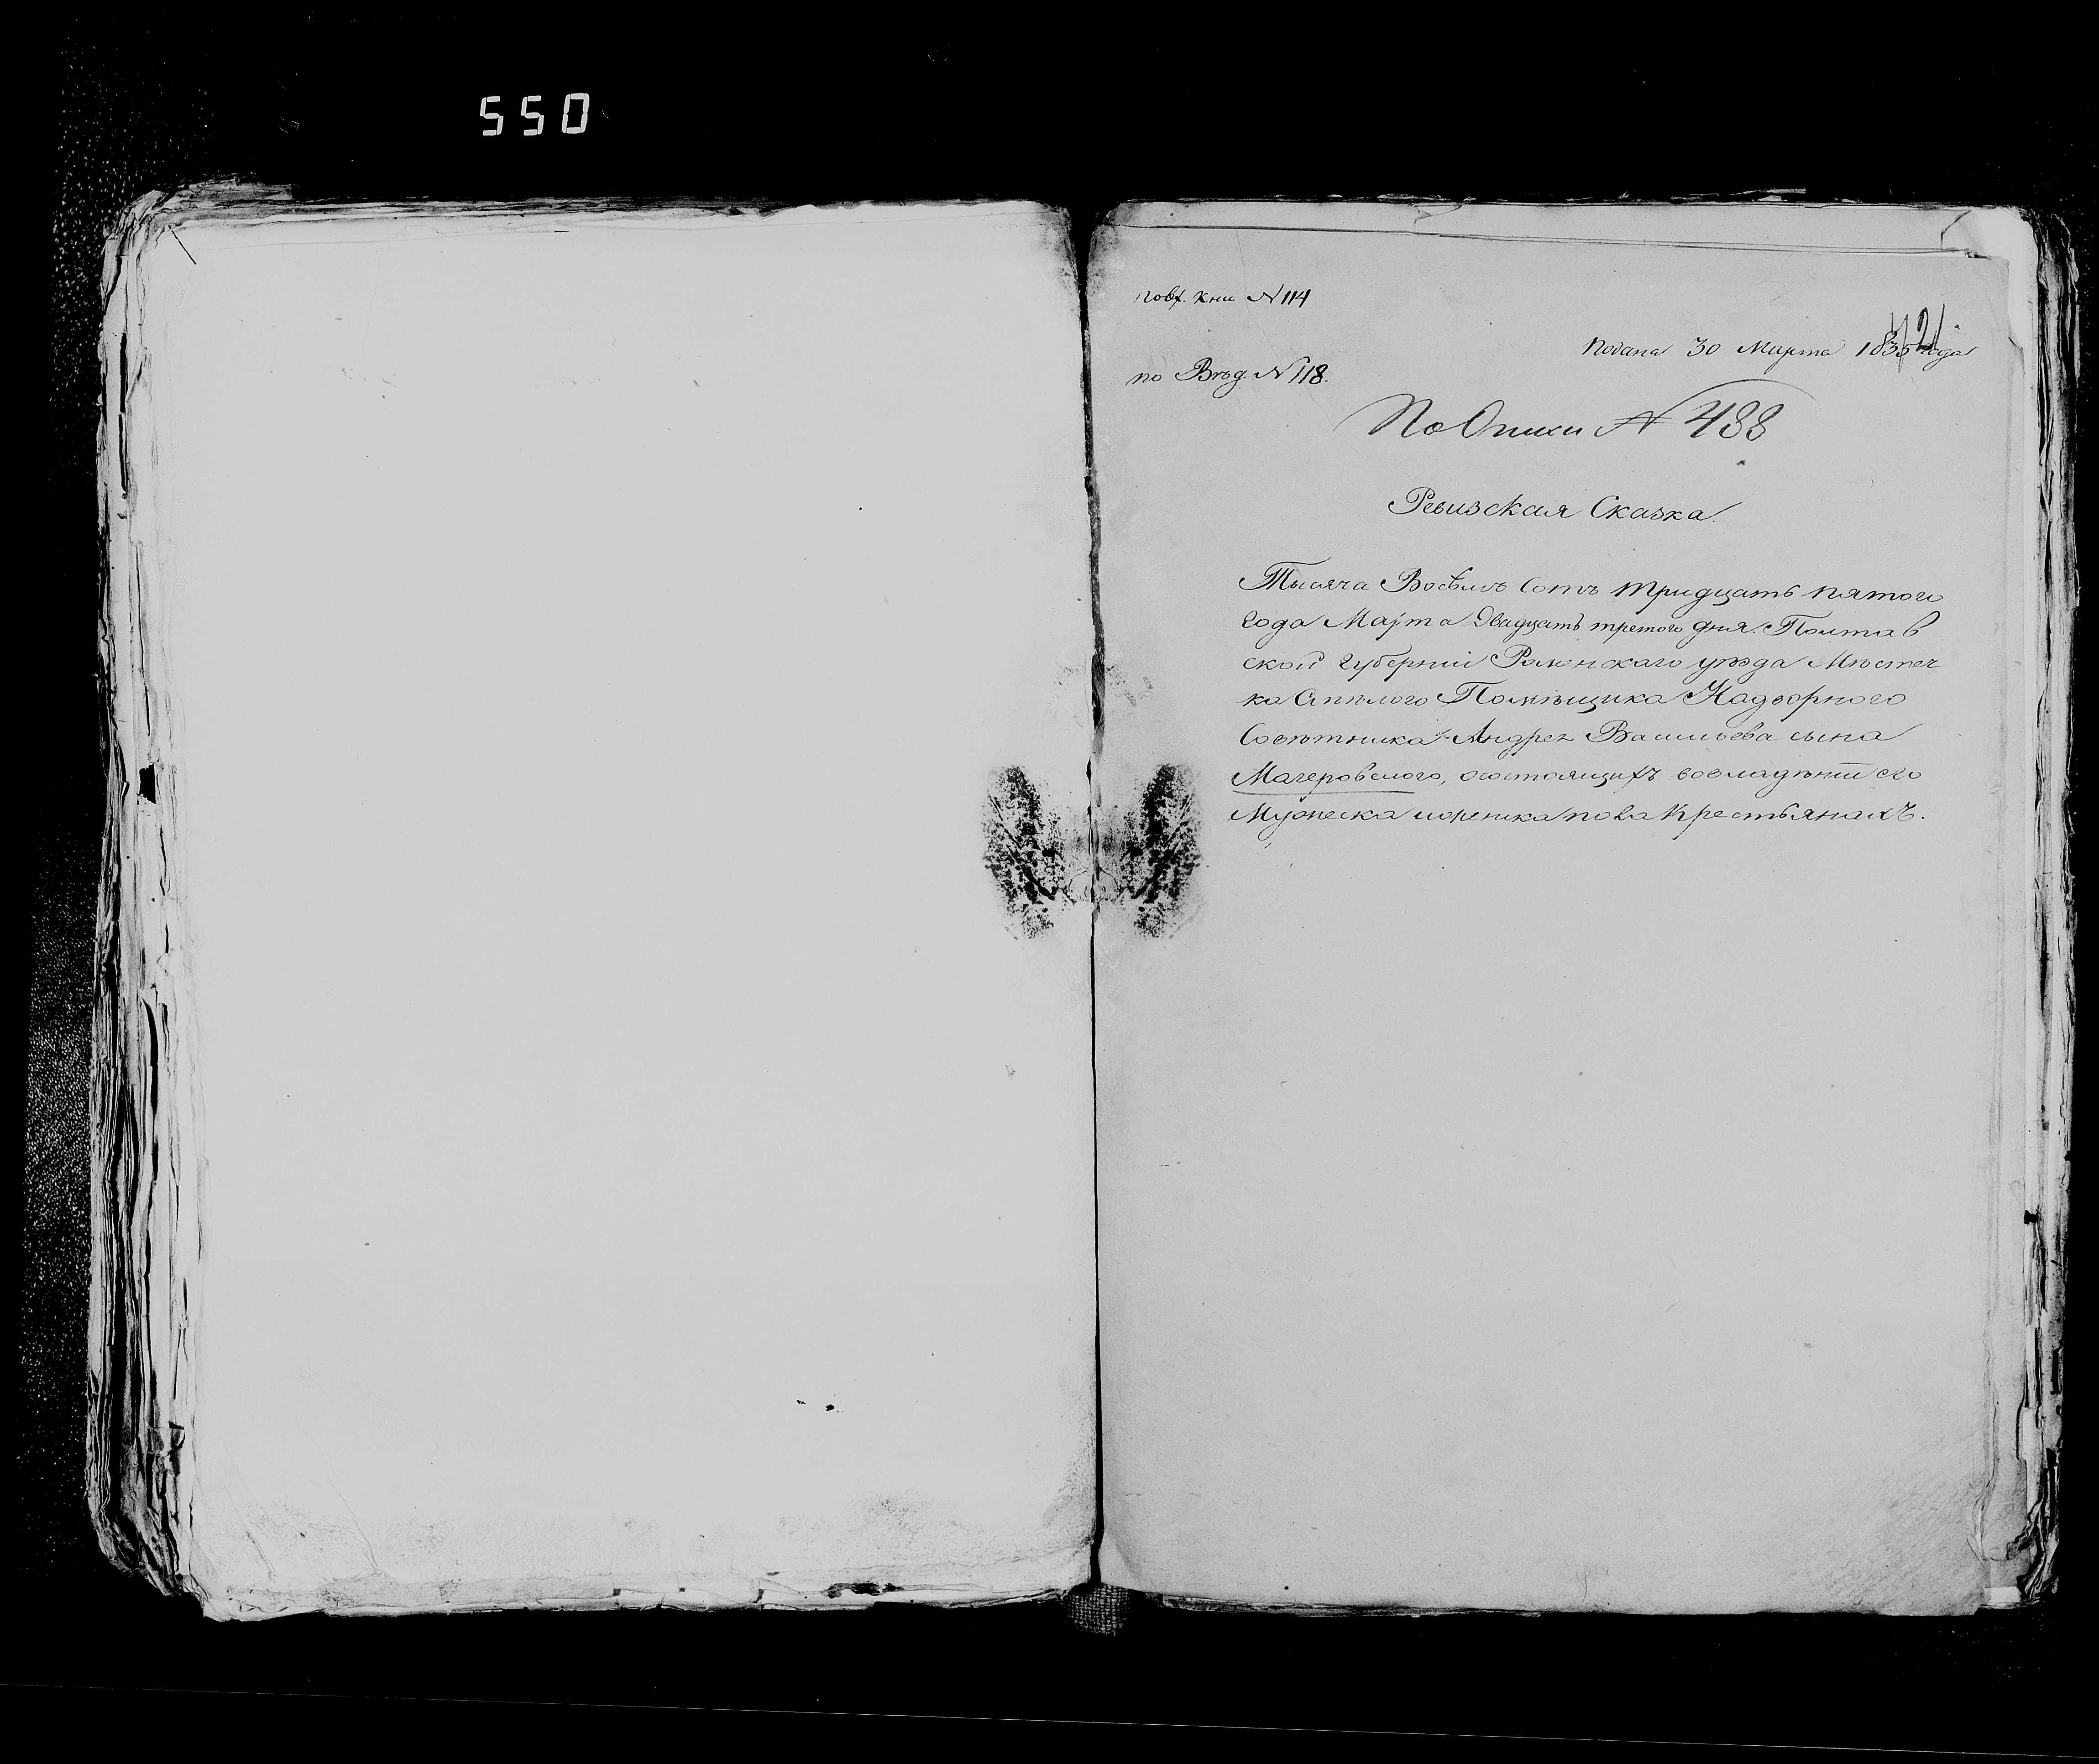 550
повх. кни N 114
Подана 30 Марта 1835 года
по Вѣд. N 118.
По Описи N 488
Ревизская Сказка.
Тысяча Восѣмь Сотъ тридцать пятого
года Марта Двадцать третого дня. Полтав
ской Губерніи Роменскаго уѣзда Мѣстеч
ка Смѣлого Помѣщика Надворного
Совѣтника Андрея Васильева сына
Магеровского, осостоящихъ вовладѣніи его
Мужеска иженска пола Крестьянахъ.